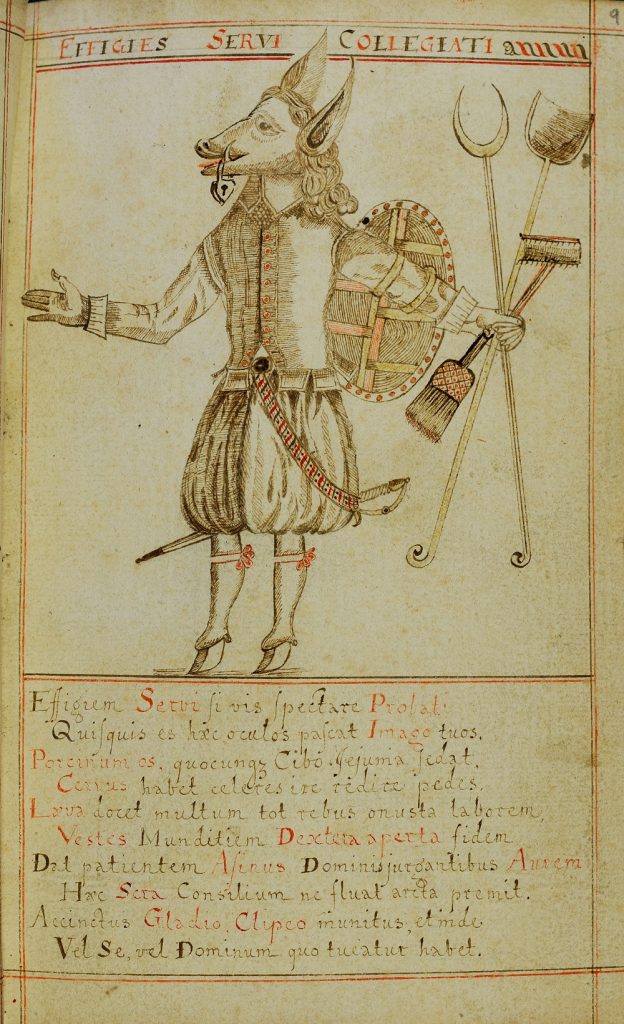 9
Effigies Servi Collegiati
Effigiem Servi si vis spectare Probati
Quisquis es hæc oculos pascat Imago tuos.
Porcinum os, quocunq; Cibo Jejunia sedat,
Cervus habet celeres ire redire pedes.
Læva docet multum tot rebus onusta laborem,
Vestes Munditiem Dextera aperta fidem
Dat patientem Asinus Dominis jurgantibus Aurem
Hæc Sera Consilium ne fluat arcta premit.
Accinctus Gladio, Clipeo munitus, et inde
Vel Se, vel Dominum quo tueatur habet.